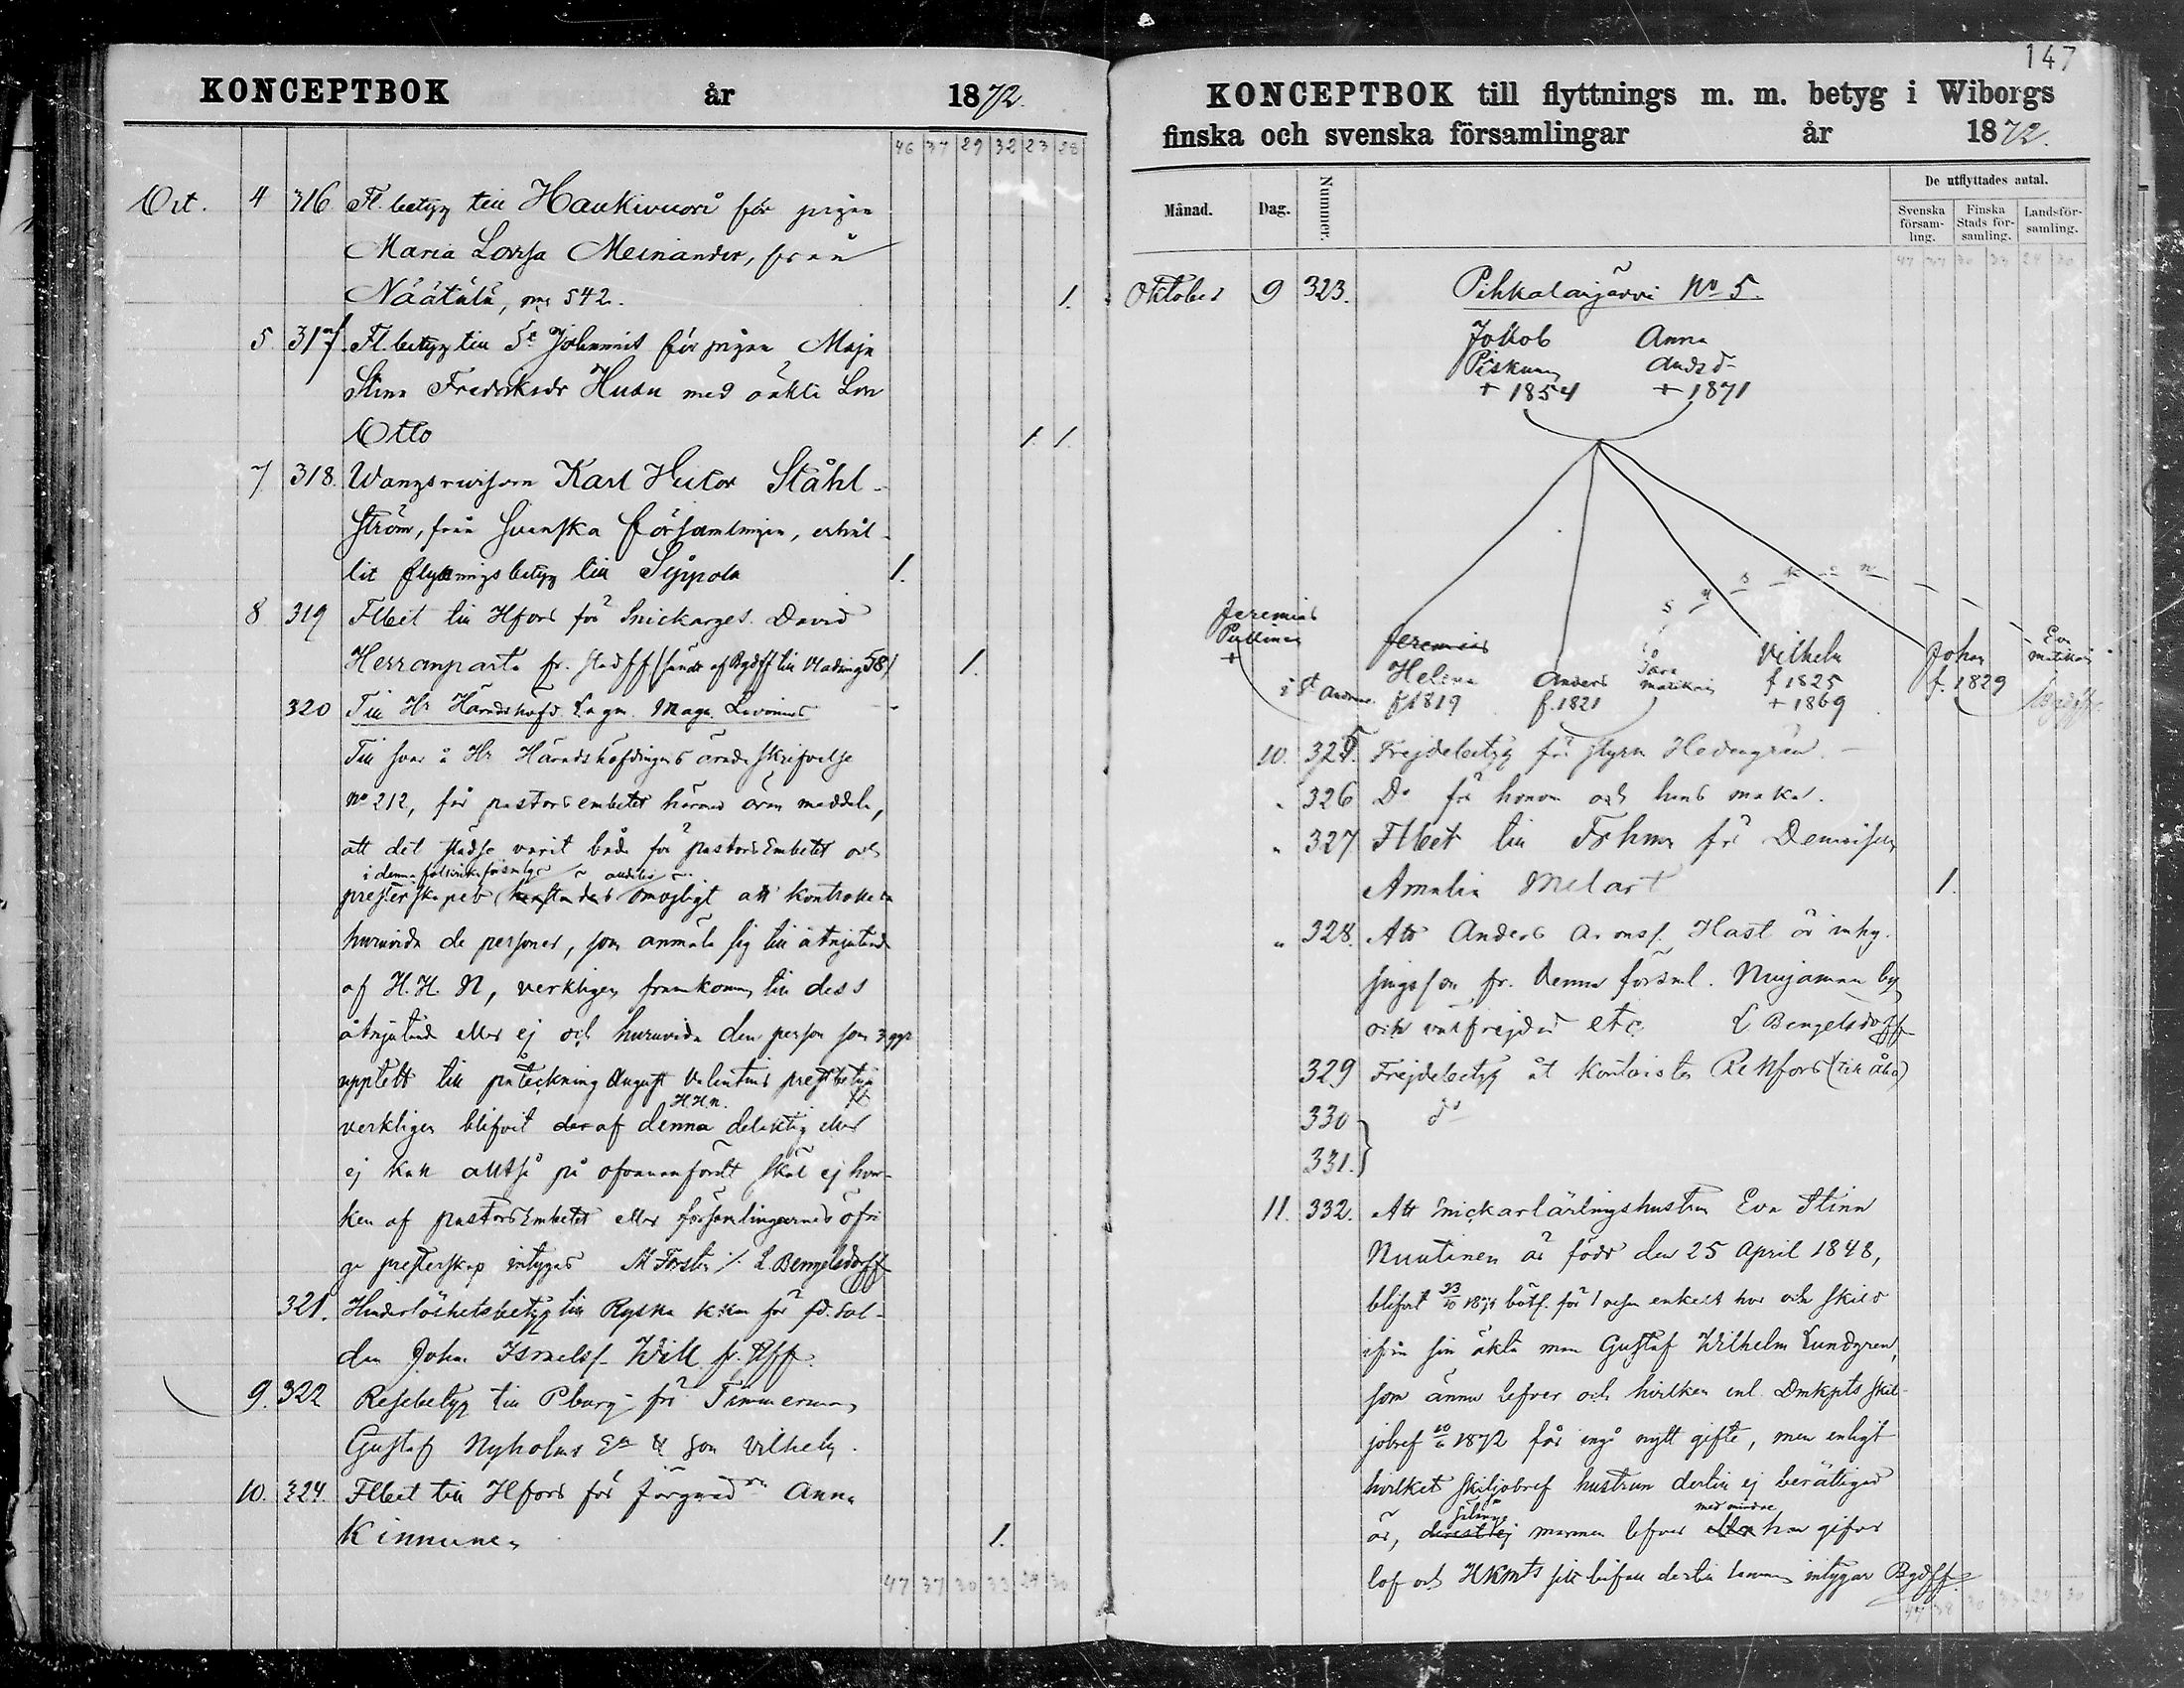 KONCEPTBOK år 1872.
46 37 29 32 23 28
Oct. 4 316 Fl. betyg till Haukivuori för pigan
Maria Lovisa Meinander, från
Näätälä, pag 542. 1.
5 317. Fl. betyg till St Johannis för pigan Maja
Stina Fredriksdr Husu med oäkta Son
Otto 1. 1.
7 318. Karl Hector Ståhl-
ström, från Svenska församlingen, erhål-
lit flyttningsbetyg till Sippola 1.
8 319 Flbet till Hfors för Snickarges. David
Herranparta fr. stadsff 1.
320 Till Hr Häradshöfd. Lagm. Magn. Lavonius
Till svar å Hr Häradshöfdingens ärade skrifvelse
No 212, får pastorsembetet härmed äran meddela,
att det städse varit både för pastorsEmbetet och
i denna församlg alldeles
presterskapet omöjligt att kontrollera
huruvida de personer, som anmäla sig till åtnjutande
af H. H. N, verkligen framkomma till dess
åtnjutande eller ej och huruvida den person som
upptett till påteckning August Valentins prestbetyg
H.H.N.
verkligen blifvit af denna delaktig eller
ej kan alltså på ofvananfördt skäl ej hvar-
ken af pastorsEmbetet eller församlingarnes öfri
ga presterskap intygas L Bengelsdorff
321. Hinderlöshetsbetyg till Ryska kkan för fd. Sol-
den Johan Israelss. Will fr.
9. 322 Resebetyg till Pburg för Timmerman
Gustaf Nyholms son Vilhelm.
10. 324. Flbet till Hfors för Anna
Kinnunen 1.
47 37 30 33 24 30
147
KONCEPTBOK till flyttnings m. m. betyg i Wiborgs
finska och svenska församlingar år 1872.
Månad. Dag. Nummer. De utflyttades antal.
Svenska försam-ling. Finska Stads för-samling. Landsför-samling.
47 37 30 33 24 30
Oktober 9 323. Pihkalanjärvi No 5.
Jakob Anna
Piskunen Andsdr
+ 1854 + 1871
syskon
Jeremias
Pullinen
+
Jeremias
Helena
f 1819
i St Andrene
Anders
f. 1821
Sara
Vilhelm
f 1825
+ 1869
Johan
f. 1829
Eva
10. 325. Frejdebetyg för styrm Hedengren.
" 326 Do för honom och hans maka.
" 327 Flbet till Frhmn för Demoisellen
Amalia Melart 1.
" 328. Att Anders Aronss. Hast är inhy-
singsson fr. denna försml. Nuijamaa by
och välfrejdad etc L Bengelsdorff
329 Frejdebetyg åt kontorister Renfors (till Åbo)
330 do
331.
11. 332. Att Snickarlärlingshustrun Eva Stina
Nuutinen är född den 25 April 1848,
blifvit bötf. för 1 resa enkelt hor och skild
ifrån sin äkta man Gustaf Wilhelm Lundgren,
som ännu lefver och hvilken enl. Dmkpts skil-
jobref 1872 får ingå nytt gifte, men enligt
hvilket skiljobref hustrun dertill ej berättigad
sålänge med mindre
är, mannen lefver eller han gifver
lof och HKMts bifall dertill intygar Bgdff